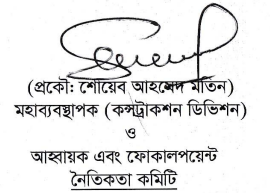 (প্রকৌ: শোয়েব আহমেদ মতিন)
মহাব্যবস্থাপক (কন্সট্রাকশন ডিভিশন)
ও
আহ্বায়ক এবং ফোকালপয়েন্ট
নৈতিকতা কমিটি